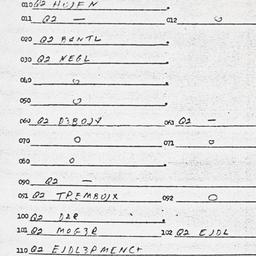 010 Q2 HUJFN
011 Q2 — 012 0
020 Q2 BANTL
030 Q2 NEGL
040 0
050 0
060 Q2 D3BOJX 061 Q2 —
070 0 071 0
080 0
090 Q2 —
091 Q2 TREMBOJX 092 0
100 Q2 DZR
101 Q2 MOG3R 102 Q2 EJDL
110 Q2 EJDL3PMENC+